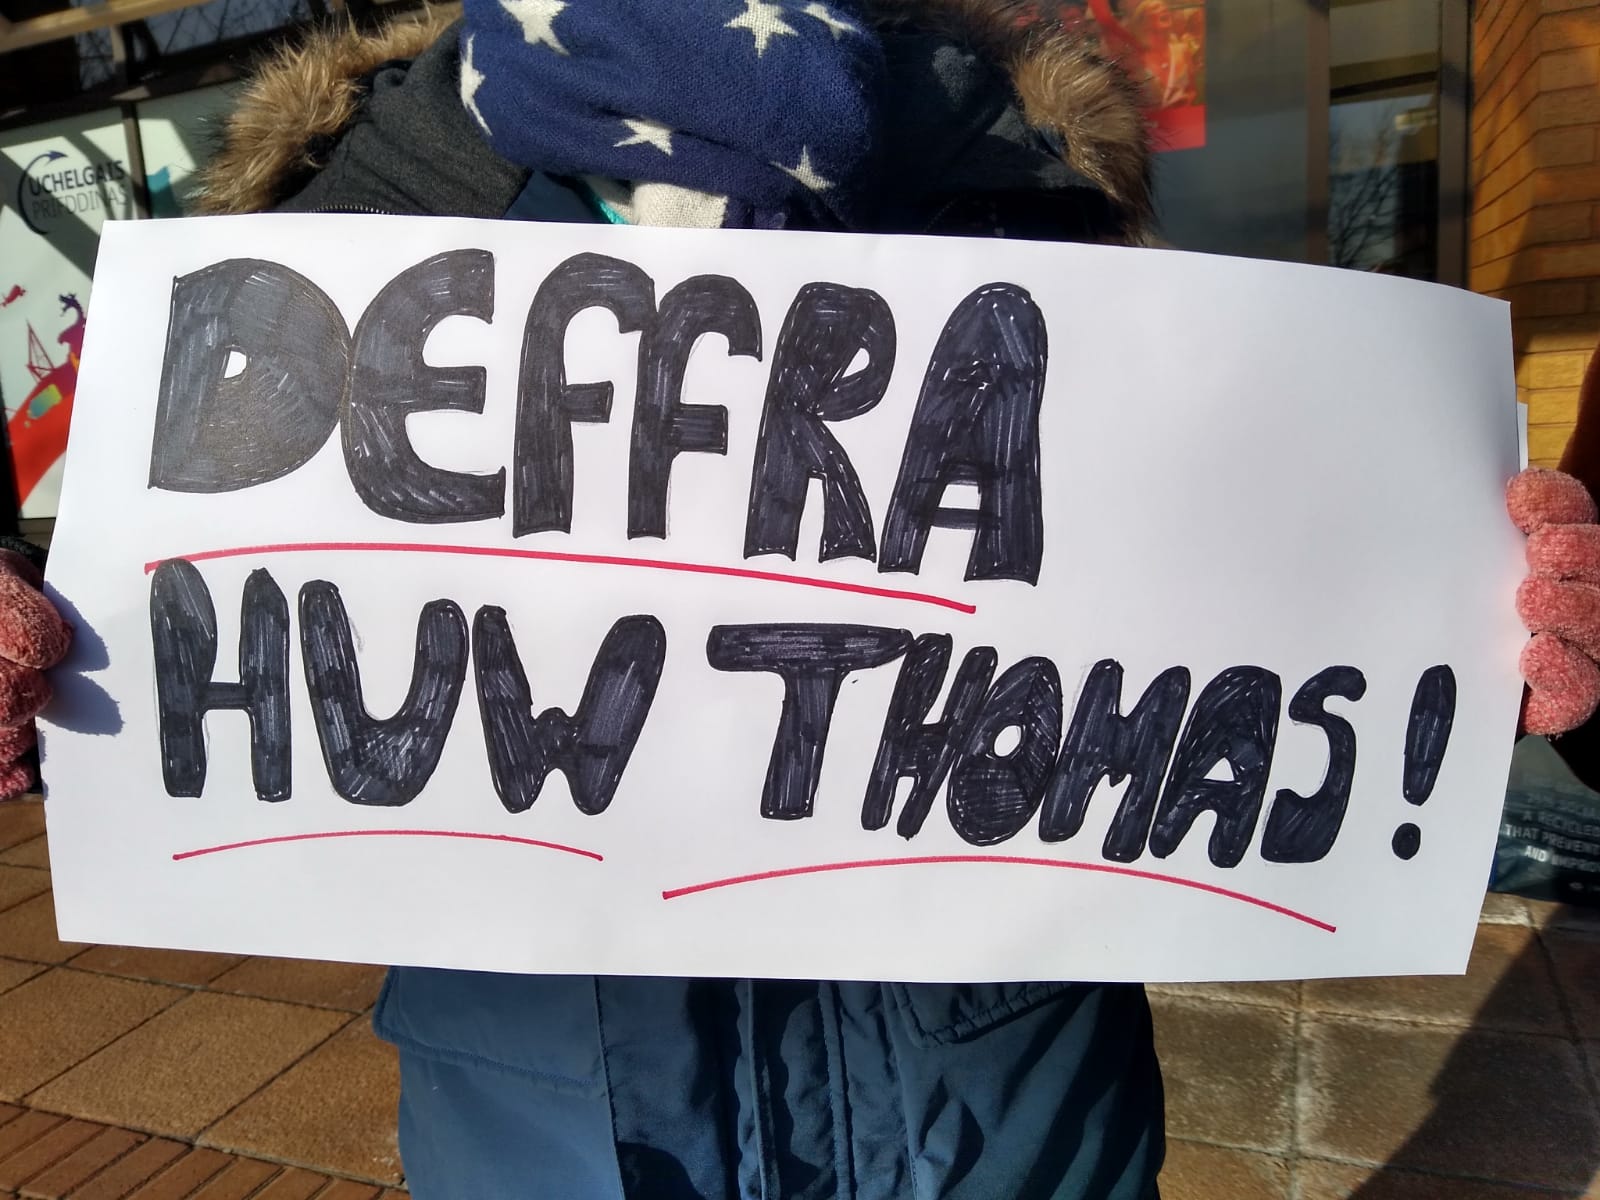 UCHELGAIS
PRIFDDINAS
DEFFRA
HUW THOMAS!
A RECYCLED
THAT PREVENT
AND